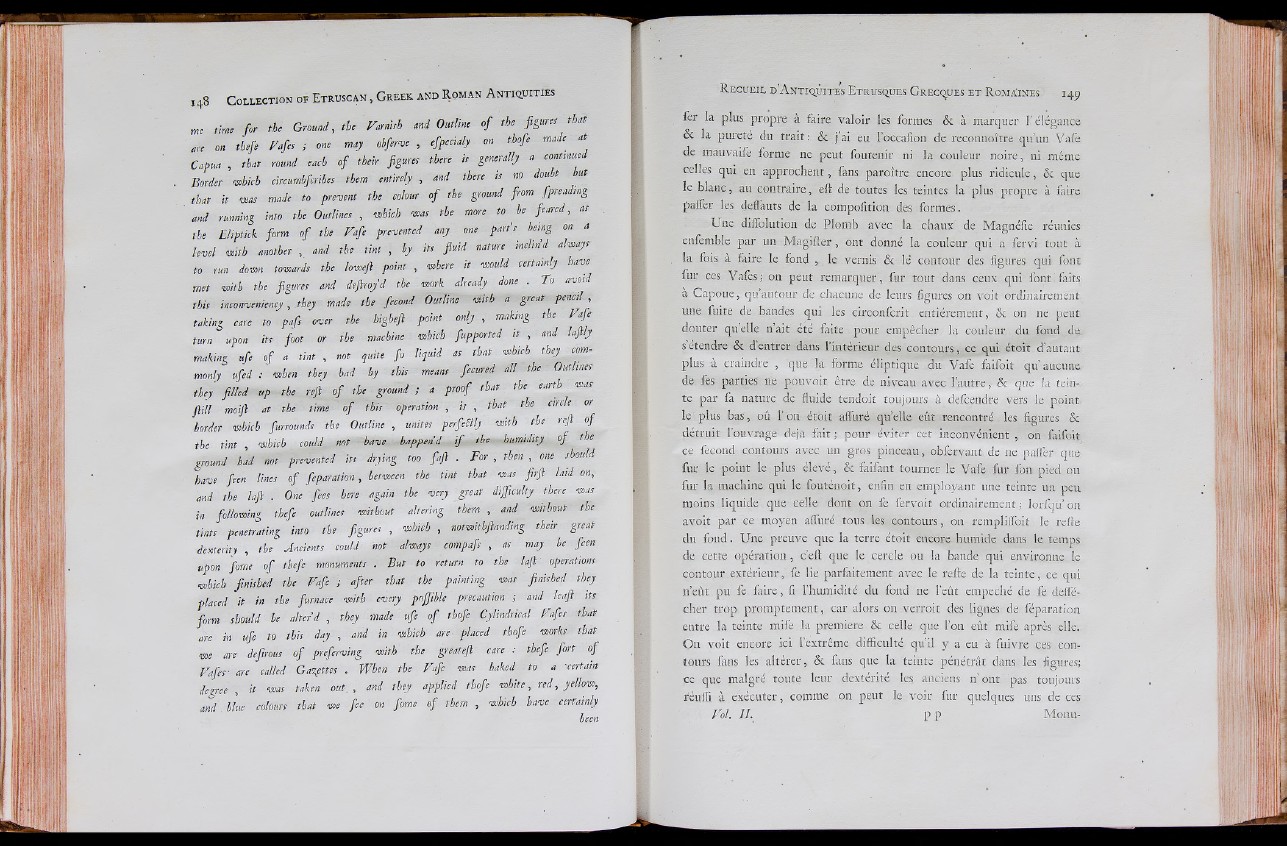 148 COLLECTION OF ETRUSCAN, GREEK AND ROMAN ANTIQUITIES
me time for the Ground, the Varnish and Outline of the figures that
are on theſe Vaſes ; one may obſerve , eſpecialy on thoſe made at
Capua , that round each of their figures there is generally a continued
Border which circumbſcribes them entirely , and there is no doubt but
that it was made to prevent the colour of the ground from ſpreading
and running into the Outlines , which was the more to be feared, as
the Eliptick form of the Vaſe prevented any one part's being on a
level with another , and the tint , by its fluid nature inclin'd always
to run down towards the loweſt point , where it would certainly have
met with the figures and deſtroy'd the work already done . To avoid
this inconveniency , they made the ſecond Outline with a great pencil ,
taking care to paſs over the higheſt point only , making the Vaſe
turn upon its foot or the machine which ſupported it , and laſtly
making uſe of a tint , not quite ſo liquid as that which they com-
monly uſed : when they had by this means ſecured all the Outlines
they filled up the reſt of the ground ; a proof that the earth was
ſtill moiſt at the time of this operation , is , that the circle or
border which ſurrounds the Outline , unites perfectly with the reſt of
the tint , which could not have happen'd if the humidity of the
ground had not prevented its drying too faſt . For , then , one should
have ſeen lines of ſeparation , between the tint that was firſt laid on,
and the laſt . One ſees here again the very great difficulty there was
in following theſe outlines without altering them , and without the
tints penetrating into the figures , which , notwithſtanding their great
dexterity , the Ancients could not always compaſs , as may be ſeen
upon ſome of theſe monuments . But to return to the laſt operations
which finished the Vaſe ; after that the painting was finished they
placed it in the furnace with every poſſible precaution ; and leaſt its
form should be alter'd , they made uſe of thoſe Cylindrical Vaſes that
are in uſe to this day , and in which are placed thoſe works that
we are deſirous of preſerving with the greateſt care : theſe ſort of
Vaſes are called Gazettes . When the Vaſe was baked to a certain
degree , it was taken out , and they applied thoſe white , red , yellow,
and blue colours that we ſee on ſome of them , which have certainly
been
RECUEIL D'ANTIQUITÉS ETRUSQUES GRECQUES ET ROMAINES 149
ſer la plus propre à faire valoir les formes & à marquer l'élégance
& la pureté du trait : & j'ai eu l'occaſion de reconnoître qu'un Vaſe
de mauvaiſe forme ne peut ſoutenir ni la couleur noire , ni même
celles qui en approchent , ſans paroître encore plus ridicule , & que
le blanc , au contraire , eſt de toutes les teintes la plus propre à faire
paſſer les deffauts de la compoſition des formes .
Une diſſolution de Plomb avec la chaux de Magnéſie réunies
enſemble par un Magiſter , ont donné la couleur qui a ſervi tout à
la fois à faire le fond , le vernis & lé contour des figures qui ſont
ſur ces Vaſes ; on peut remarquer , ſur tout dans ceux qui ſont faits
à Capoue , qu'autour de chacune de leurs figures on voit ordinairement
une ſuite de bandes qui les circonſcrit entiérement , & on ne peut
douter qu'elle n'ait été faite pour empêcher la couleur du fond de
s'étendre & d'entrer dans l'intérieur des contours , ce qui étoit d'autant
plus à craindre , que la forme éliptique du Vaſe faiſoit qu'aucune
de ſes parties ne pouvoit être de niveau avec l'autre , & que la tein-
te par ſa nature de fluide tendoit toujours à deſcendre vers le point
le plus bas , où l'on étoit aſſuré qu'elle eût rencontré les figures &
détruit l'ouvrage déja fait ; pour éviter cet inconvénient , on faiſoit
ce ſecond contours avec un gros pinceau , obſervant de ne paſſer que
ſur le point le plus élevé , & faiſant tourner le Vaſe ſur ſon pied ou
ſur la machine qui le ſoutenoit , enfin en employant une teinte un peu
moins liquide que celle dont on ſe ſervoit ordinairement ; lorſqu'on
avoit par ce moyen aſſuré tous les contours , on rempliſſoit le reſte
du fond . Une preuve que la terre étoit encore humide dans le temps
de cette opération , c'eſt que le cercle ou la bande qui environne le
contour extérieur , ſe lie parfaitement avec le reſte de la teinte , ce qui
n'eût pu ſe faire , ſi l'humidité du fond ne l'eût empeché de ſe deſſé-
cher trop promptement , car alors on verroit des lignes de ſéparation
entre la teinte miſe la premiere & celle que l'on eût miſe après elle.
On voit encore ici l'extrême difficulté qu'il y a eu à ſuivre ces con-
tours ſans les altérer , & ſans que la teinte pénétrât dans les figures;
ce que malgré toute leur dextérité les anciens n'ont pas toujours
réuſſi à exécuter , comme on peut le voir ſur quelques uns de ces
Vol. II. p p Monu-